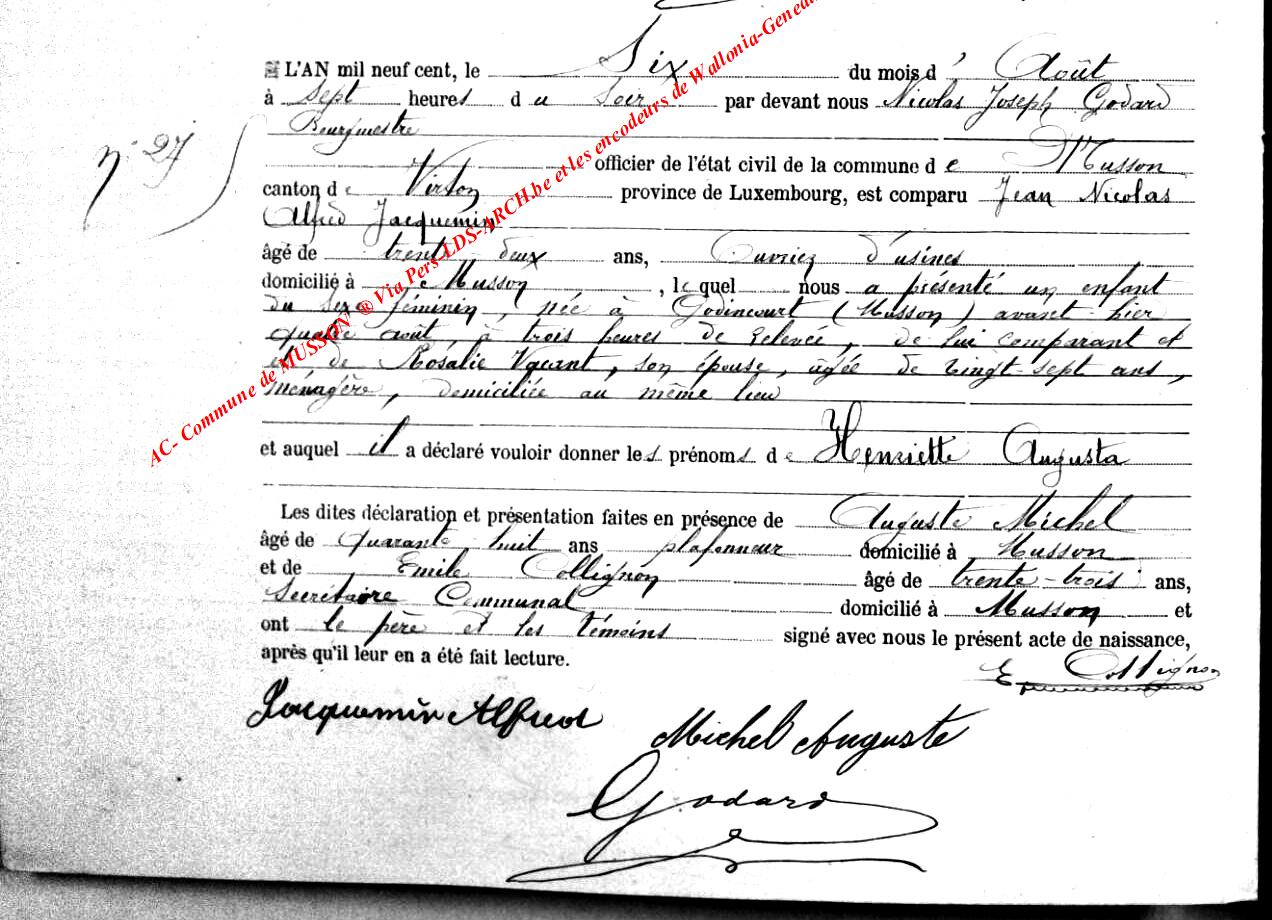 L'AN mil neuf cent, le Six du mois d' Août
à Sept heures du Soir par devant nous Nicolas Joseph Godard
Bourgmestre
n° 27
officier de l'état civil de la commune de Musson
canton de Virton province de Luxembourg, est comparu Jean Nicolas
Alfred Jacquemin
âgé de trente deux ans, Ouvrier d'usines
domicilié à Musson, lequel nous a présenté un enfant
du sexe féminin, née à Godincourt (Musson) avant hier
quatre août, à trois heures de relevée, de lui comparant et
et de Rosalie Vacant, son épouse, âgée de vingt-sept ans,
ménagère, domiciliée au même lieu
et auquel il a déclaré vouloir donner les prénoms de Henriette Augusta
Les dites déclaration et présentation faites en présence de Auguste Michel
âgé de quarante huit ans plafonneur domicilié à Musson
et de Emile Collignon âgé de trente-trois ans,
Secrétaire Communal domicilié à Musson et
ont le père et les témoins signé avec nous le présent acte de naissance,
après qu'il leur en a été fait lecture.
E. Collignon
Jacquemin Alfred
Michel Auguste
Godard
AC- Commune de MUSSON ® Via Pers-LDS-ARCH.be et les encodeurs de Wallonia-Genea